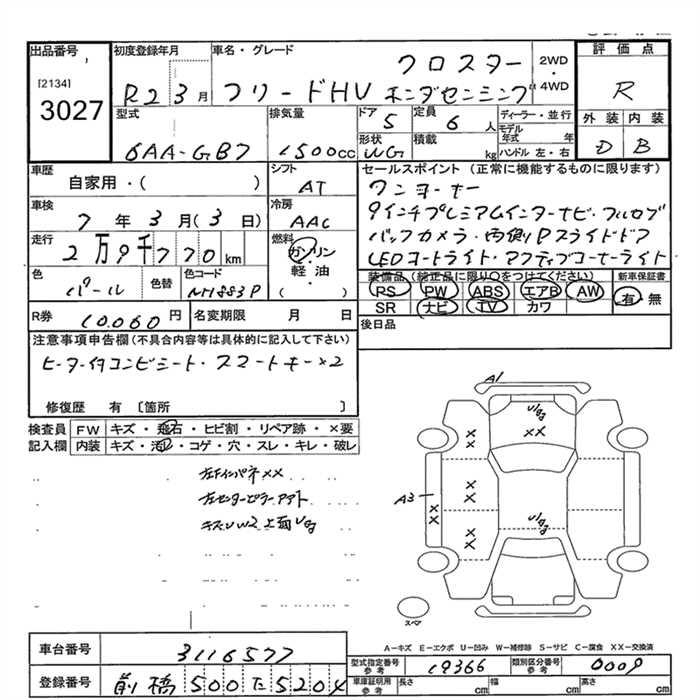 出品番号
[2134]
3027
初度登録年月 R2 3月
車名・グレード クロスター
フリードHV ホンダセンシング
2WD・4WD
評価点
R
外装 内装
D B
型式 6AA-GB7
排気量 1500cc
ドア 5
定員 6人
形状 WG
積載 kg
ディーラー・並行
モデル年式 年
ハンドル 左・右
車歴 自家用・( )
シフト AT
セールスポイント(正常に機能するものに限ります)
ワンオーナー
9インチプレミアムインターナビ・フルセグ
バックカメラ・両側Pスライドドア
LEDオートライト・アクティブコーナーライト
車検 7年3月(3日)
冷房 AAC
走行 2万9千770km
燃料 ガソリン
軽油
( ・ )
色 パール
色替
色コード NH883P
装備品(純正品に限り○をつけてください)
新車保証書
PS PW ABS エアB AW
有・無
SR ナビ TV カワ
R券 10.060円
名変期限 月 日
後日品
注意事項申告欄(不具合内容等は具体的に記入して下さい)
ヒーター付コンビシート・スマートキー×2
修復歴 有 [箇所 ]
検査員記入欄
FW キズ・飛石・ヒビ割・リペア跡・×要
内装 キズ・汚レ・コゲ・穴・スレ・キレ・破レ
左Fインパネ××
左センターピラーアウト
キズUW2上面Ug
A1
A3
スペア
A−キズ E−エクボ U−凹み W−補修跡 S−サビ C−腐食 XX−交換済
車台番号 3116577
登録番号 前橋 500 た 5204
型式指定番号 参考 19366
類別区分番号 参考 0009
車庫証明用 参考 長さ cm 幅 cm 高さ cm